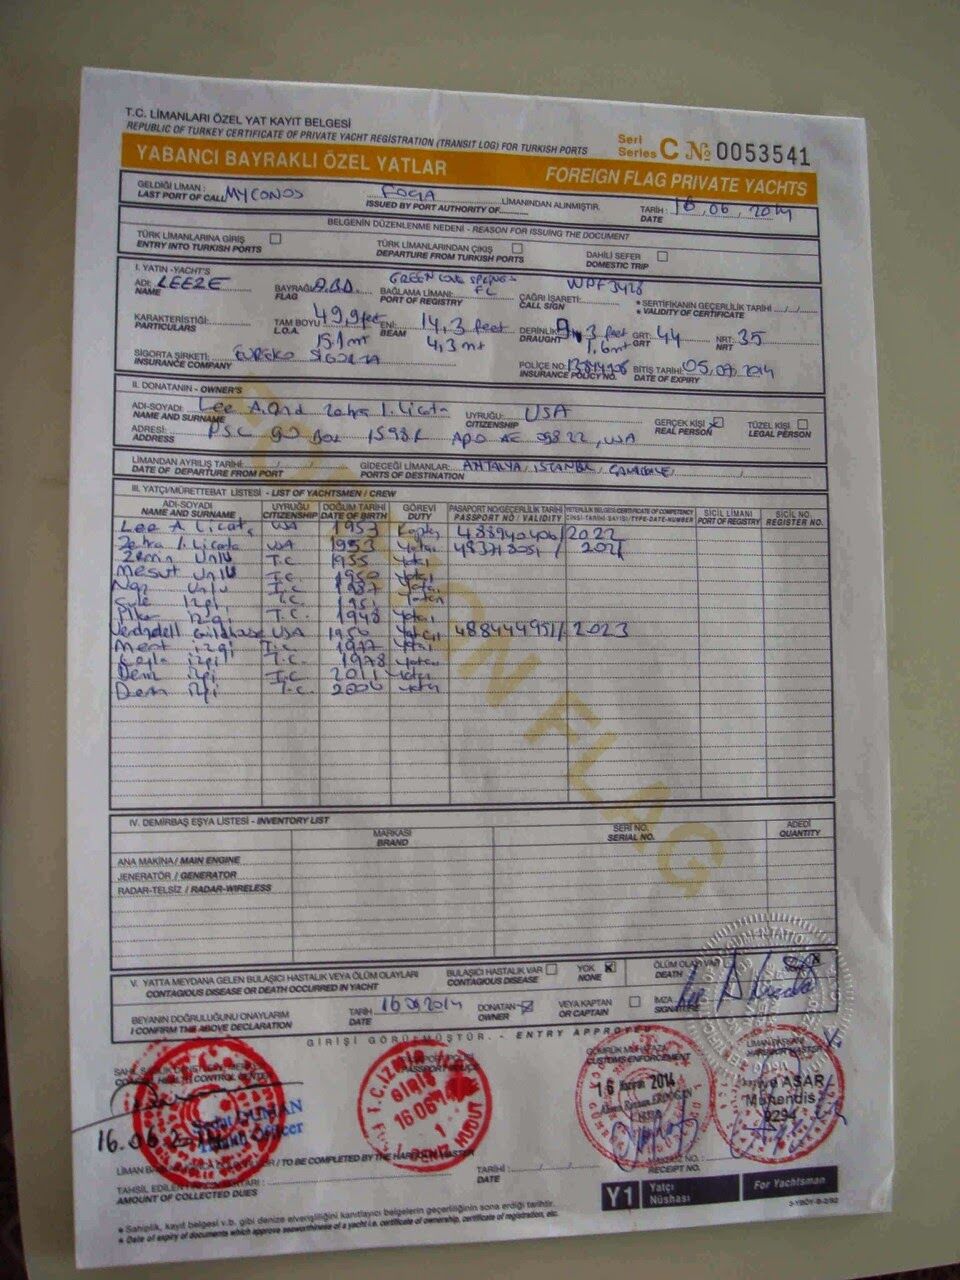 T.C. LİMANLARI ÖZEL YAT KAYIT BELGESİ
REPUBLIC OF TURKEY CERTIFICATE OF PRIVATE YACHT REGISTRATION (TRANSIT LOG) FOR TURKISH PORTS
Seri
Series C No 0053541
YABANCI BAYRAKLI ÖZEL YATLAR
FOREIGN FLAG PRIVATE YACHTS
GELDİĞİ LİMAN :
LAST PORT OF CALL MYCONOS
FOÇA LİMANINDAN ALINMIŞTIR.
ISSUED BY PORT AUTHORITY OF
TARİH : 16.06.2014
DATE
BELGENİN DÜZENLENME NEDENİ - REASON FOR ISSUING THE DOCUMENT
TÜRK LİMANLARINA GİRİŞ
ENTRY INTO TURKISH PORTS
TÜRK LİMANLARINDAN ÇIKIŞ
DEPARTURE FROM TURKISH PORTS
DAHİLİ SEFER
DOMESTIC TRIP
I. YATIN - YACHT'S
ADI: LEEZE
NAME
BAYRAĞI: A.B.D.
FLAG
GREEN COVE SPRINGS FL
BAĞLAMA LİMANI:
PORT OF REGISTRY
ÇAĞRI İŞARETİ: WDF3428
CALL SIGN
* SERTİFİKANIN GEÇERLİLİK TARİHİ
* VALIDITY OF CERTIFICATE
KARAKTERİSTİĞİ:
PARTICULARS
TAM BOYU 49,9 feet
L.O.A. 15.1 mt
ENİ: 14,3 feet
BEAM 4,3 mt
DERİNLİK 3 feet
DRAUGHT 1,6 mt
GRT: 44
GRT
NRT: 35
NRT
SİGORTA ŞİRKETİ: EUREKO SİGORTA
INSURANCE COMPANY
POLİÇE NO:
INSURANCE POLICY NO.
BİTİŞ TARİHİ: 05.09.2014
DATE OF EXPIRY
II. DONATANIN - OWNER'S
ADI-SOYADI: Lee A. And Zehra I. Licata
NAME AND SURNAME
UYRUĞU: USA
CITIZENSHIP
GERÇEK KİŞİ
REAL PERSON
TÜZEL KİŞİ
LEGAL PERSON
ADRESİ: PSC 90 Box APO AE 09822, USA
ADDRESS
LİMANDAN AYRILIŞ TARİHİ:
DATE OF DEPARTURE FROM PORT
GİDECEĞİ LİMANLAR: ANTALYA, ISTANBUL, ÇANAKKALE,
PORTS OF DESTINATION
III. YATÇI/MÜRETTEBAT LİSTESİ - LIST OF YACHTSMEN / CREW
ADI-SOYADI
NAME AND SURNAME
UYRUĞU
CITIZENSHIP
DOĞUM TARİHİ
DATE OF BIRTH
GÖREVİ
DUTY
PASAPORT NO/GEÇERLİLİK TARİHİ
PASSPORT NO / VALIDITY
YETERLİLİK BELGESİ/CERTIFICATE OF COMPETENCY
CİNSİ-TARİHİ-SAYISI/TYPE-DATE-NUMBER
SİCİL LİMANI
PORT OF REGISTRY
SİCİL NO.
REGISTER NO.
Lee A. Licata USA 1953 Kaptan 483940406/2022
Zehra I. Licata USA 1953 Yatçı 2021
Zemin Ünlü T.C 1955 Yatçı
Mesut Ünlü T.C 1950 Yatçı
Ünlü T.C 1987 Yatçı
Şule İzgi T.C. Yatçı
İzgi T.C. 1948 Yatçı
USA 1950 Yatçı 488444951/2023
Mert İzgi T.C 1977 Yatçı
İzgi T.C. 1978 Yatçı
Deniz İzgi T.C 2011 Yatçı
İzgi T.C. Yatçı
FOREIGN FLAG
IV. DEMİRBAŞ EŞYA LİSTESİ - INVENTORY LIST
MARKASI
BRAND
SERİ NO.
SERIAL NO.
ADEDİ
QUANTITY
ANA MAKİNA / MAIN ENGINE
JENERATÖR / GENERATOR
RADAR-TELSİZ / RADAR-WIRELESS
V. YATTA MEYDANA GELEN BULAŞICI HASTALIK VEYA ÖLÜM OLAYLARI
CONTAGIOUS DISEASE OR DEATH OCCURRED IN YACHT
BULAŞICI HASTALIK VAR
CONTAGIOUS DISEASE
YOK
NONE
ÖLÜM OLAYI VAR
DEATH
BEYANIN DOĞRULUĞUNU ONAYLARIM
I CONFIRM THE ABOVE DECLARATION
TARİH 16.06.2014
DATE
DONATAN
OWNER
VEYA KAPTAN
OR CAPTAIN
İMZA
SIGNATURE
GİRİŞİ GÖRÜLMÜŞTÜR. - ENTRY APPROVED
GÜMRÜK MUHAFAZA
CUSTOMS ENFORCEMENT
LİMAN BAŞKANI
HARBOUR MASTER
GİRİŞ
16 06 14
1
16 Haziran 2014
AŞAR
Mühendis
9294
Sedat DUMAN
Officer
TO BE COMPLETED BY THE HARBOUR MASTER
AMOUNT OF COLLECTED DUES
TARİHİ :
DATE
MAKBUZ NO. :
RECEIPT NO.
Y1 Yatçı Nüshası
For Yachtsman
* Sahiplik, kayıt belgesi v.b. gibi denize elverişliliğini kanıtlayıcı belgelerin geçerliliğinin sona erdiği tarihtir.
* Date of expiry of documents which approve seaworthiness of a yacht i.e. certificate of ownership, certificate of registration, etc.